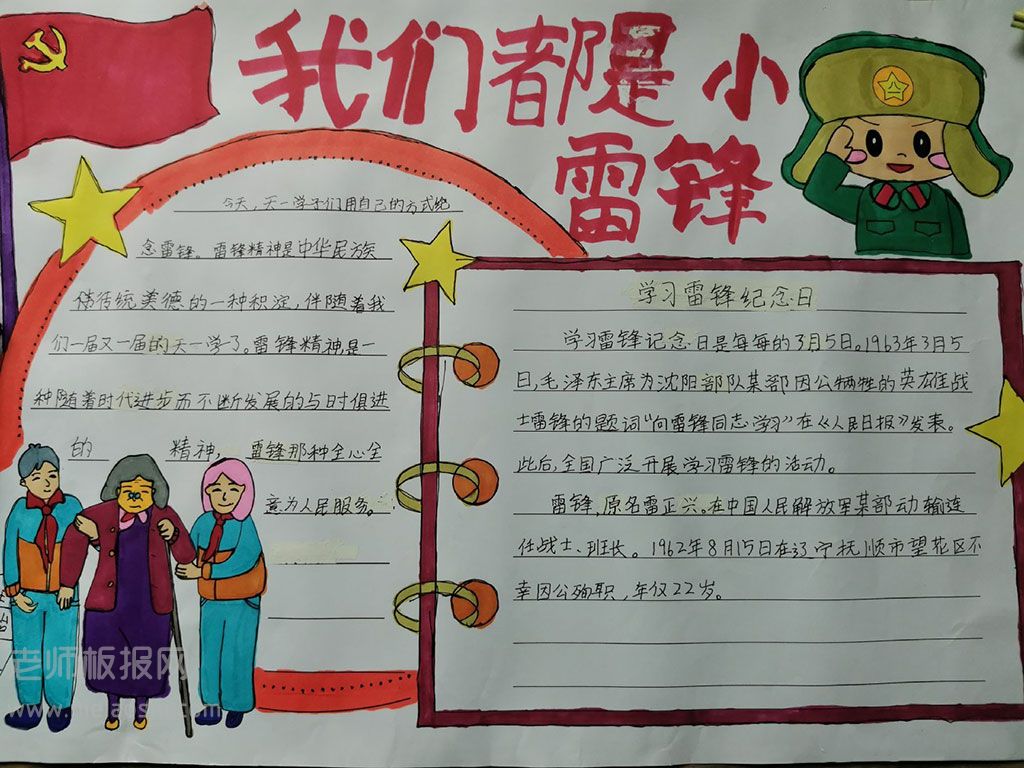 我们都是小
雷锋
今天，天一学子们用自己的方式纪
念雷锋。雷锋精神是中华民族
传统美德的一种积淀，伴随着我
们一届又一届的天一学子。雷锋精神是一
种随着时代进步而不断发展的与时俱进
的 精神，雷锋那种全心全
意为人民服务。
学习雷锋纪念日
学习雷锋记念日是每每的3月5日。1963年3月5
日，毛泽东主席为沈阳部队某部因公牺牲的英雄战
士雷锋的题词“向雷锋同志学习”在《人民日报》发表。
此后，全国广泛开展学习雷锋的活动。
雷锋，原名雷正兴。在中国人民解放军某部动输连
任战士、班长。1962年8月15日在辽宁抚顺市望花区不
幸因公殉职，年仅22岁。
老师板报网